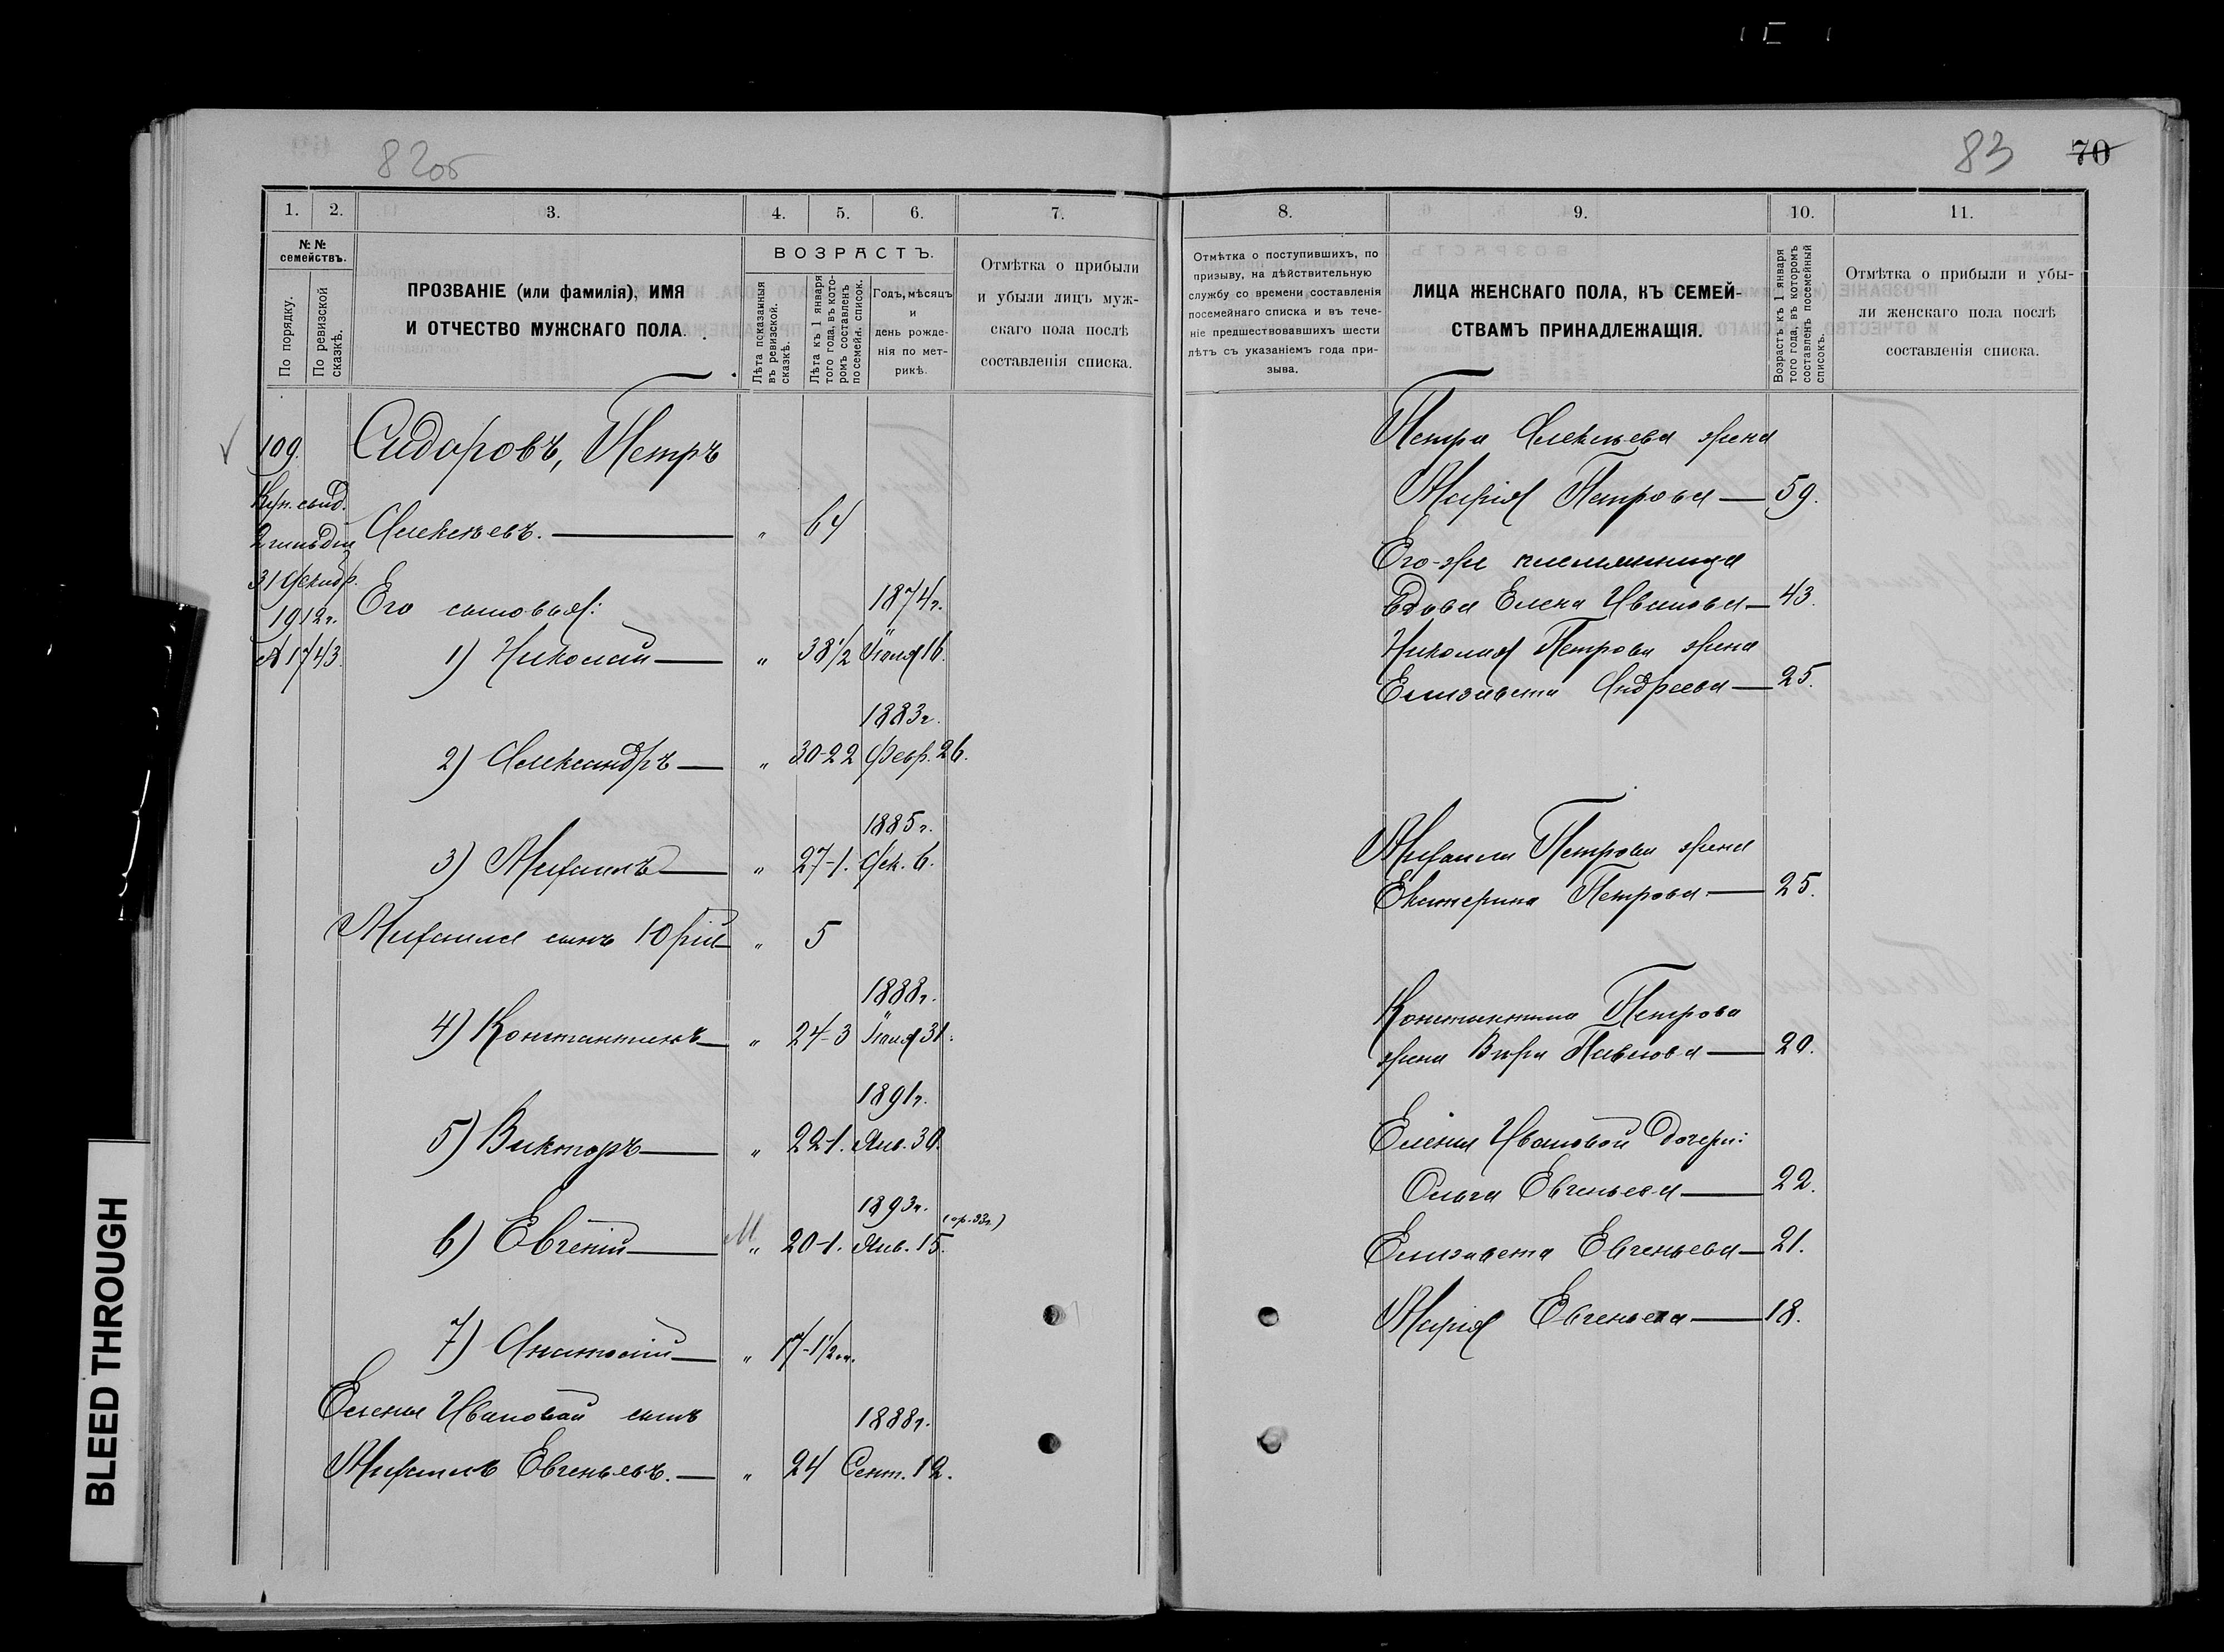 82об
1. 2. 3. 4. 5. 6. 7.
№ №
семействъ.
По порядку.
По ревизской
сказкѣ.
ПРОЗВАНІЕ (или фамилія), ИМЯ
И ОТЧЕСТВО МУЖСКАГО ПОЛА.
ВОЗРАСТЪ.
Лѣта показанныя
въ ревизской.
сказкѣ.
Лѣта къ 1 января
того года, въ кото-
ромъ составленъ
посемейн. список.
Годъ, мѣсяцъ
и
день рожде-
нія по мет-
рикѣ.
Отмѣтка о прибыли
и убыли лицъ муж-
скаго пола послѣ
составленія списка.
109. Сидоровъ, Петръ
Куп. свид.
2 гильдіи
31 Декабр.
1912 г.
№ 1743.
Алексѣевъ. — " 64
Его сыновья: 1874 г.
1) Николай — " 38 1/2 Іюня 16.
1883 г.
2) Александръ — " 30-22 Февр. 26.
1885 г.
3) Михаилъ — " 27-1. Дек. 6.
Михаила сынъ Юрій — " 5
1888 г.
4) Константинъ — " 24-3 31.
1891 г.
5) Викторъ — " 22-1. Янв. 30.
1893 г. (ор. 93 г.)
6) Евгеній — М " 20-1. Янв. 15.
7) Анатолій — " 17-1/2
Елены Ивановой сынъ 1888 г.
Михаилъ Евгеньевъ. — " 24 Сент. 12.
83 70
8. 9. 10. 11.
Отмѣтка о поступившихъ, по
призыву, на дѣйствительную
службу со времени составленія
посемейнаго списка и въ тече-
ніе предшествовавшихъ шести
лѣтъ съ указаніемъ года при-
зыва.
ЛИЦА ЖЕНСКАГО ПОЛА, КЪ СЕМЕЙ-
СТВАМЪ ПРИНАДЛЕЖАЩІЯ.
Возрастъ къ 1 января
того года, въ которомъ
составленъ посемейный
списокъ.
Отмѣтка о прибыли и убы-
ли женскаго пола послѣ
составленія списка.
Петра Алексѣева жена
Марія Петрова — 59.
Его-же племянница
вдова Елена Иванова — 43.
Николая Петрова жена
Елизавета Андреева — 25.
Михаила Петрова жена
Екатерина Петрова — 25.
Константина Петрова
жена Вѣра Павлова — 20.
Елены Ивановой дочери:
Ольга Евгеньева — 22.
Елизавета Евгеньева — 21.
Марія Евгеньева — 18.
BLEED THROUGH